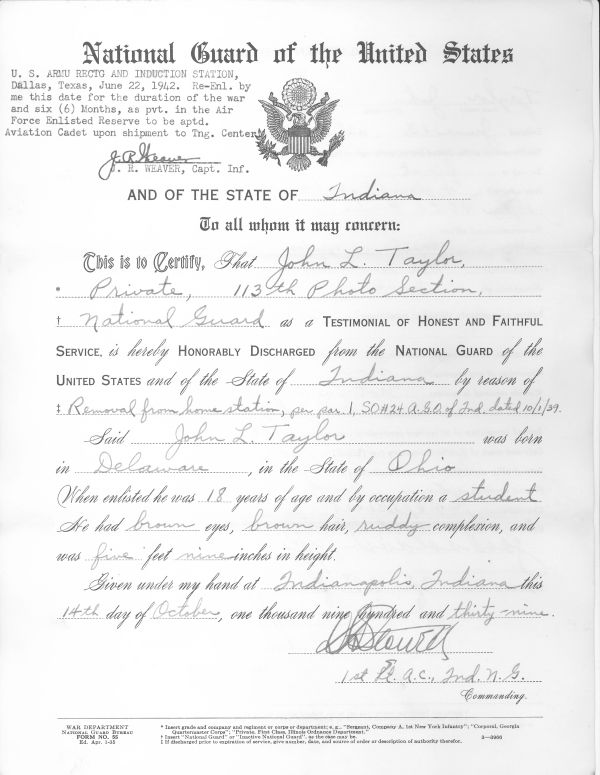 National Guard of the United States
U. S. ARMU RECTG AND INDUCTION STATION,
Dallas, Texas, June 22, 1942. Re-Enl. by
me this date for the duration of the war
and six (6) Months, as pvt. in the Air
Force Enlisted Reserve to be aptd.
Aviation Cadet upon shipment to Tng. Center
J. R. Weaver
J. R. WEAVER, Capt. Inf.
AND OF THE STATE OF Indiana
To all whom it may concern:
This is to Certify, That John L. Taylor,
* Private, 113th Photo Section,
† National Guard as a TESTIMONIAL OF HONEST AND FAITHFUL
SERVICE, is hereby HONORABLY DISCHARGED from the NATIONAL GUARD of the
UNITED STATES and of the State of Indiana by reason of
‡ Removal from home station, per par. 1, SO#24 A.G.O. of Ind. dated 10/1/39.
Said John L. Taylor was born
in Delaware, in the State of Ohio
When enlisted he was 18 years of age and by occupation a student
He had brown eyes, brown hair, ruddy complexion, and
was five feet nine inches in height.
Given under my hand at Indianapolis, Indiana this
14th day of October, one thousand nine hundred and thirty-nine.
1st Lt. A.C., Ind. N.G.
Commanding.
WAR DEPARTMENT
NATIONAL GUARD BUREAU
FORM NO. 55
Ed. Apr. 1-35
* Insert grade and company and regiment or corps or department; e. g., "Sergeant, Company A, 1st New York Infantry"; "Corporal, Georgia
Quartermaster Corps"; "Private, First Class, Illinois Ordnance Department."
† Insert "National Guard" or "Inactive National Guard", as the case may be.
‡ If discharged prior to expiration of service, give number, date, and source of order or description of authority therefor.
3—3966